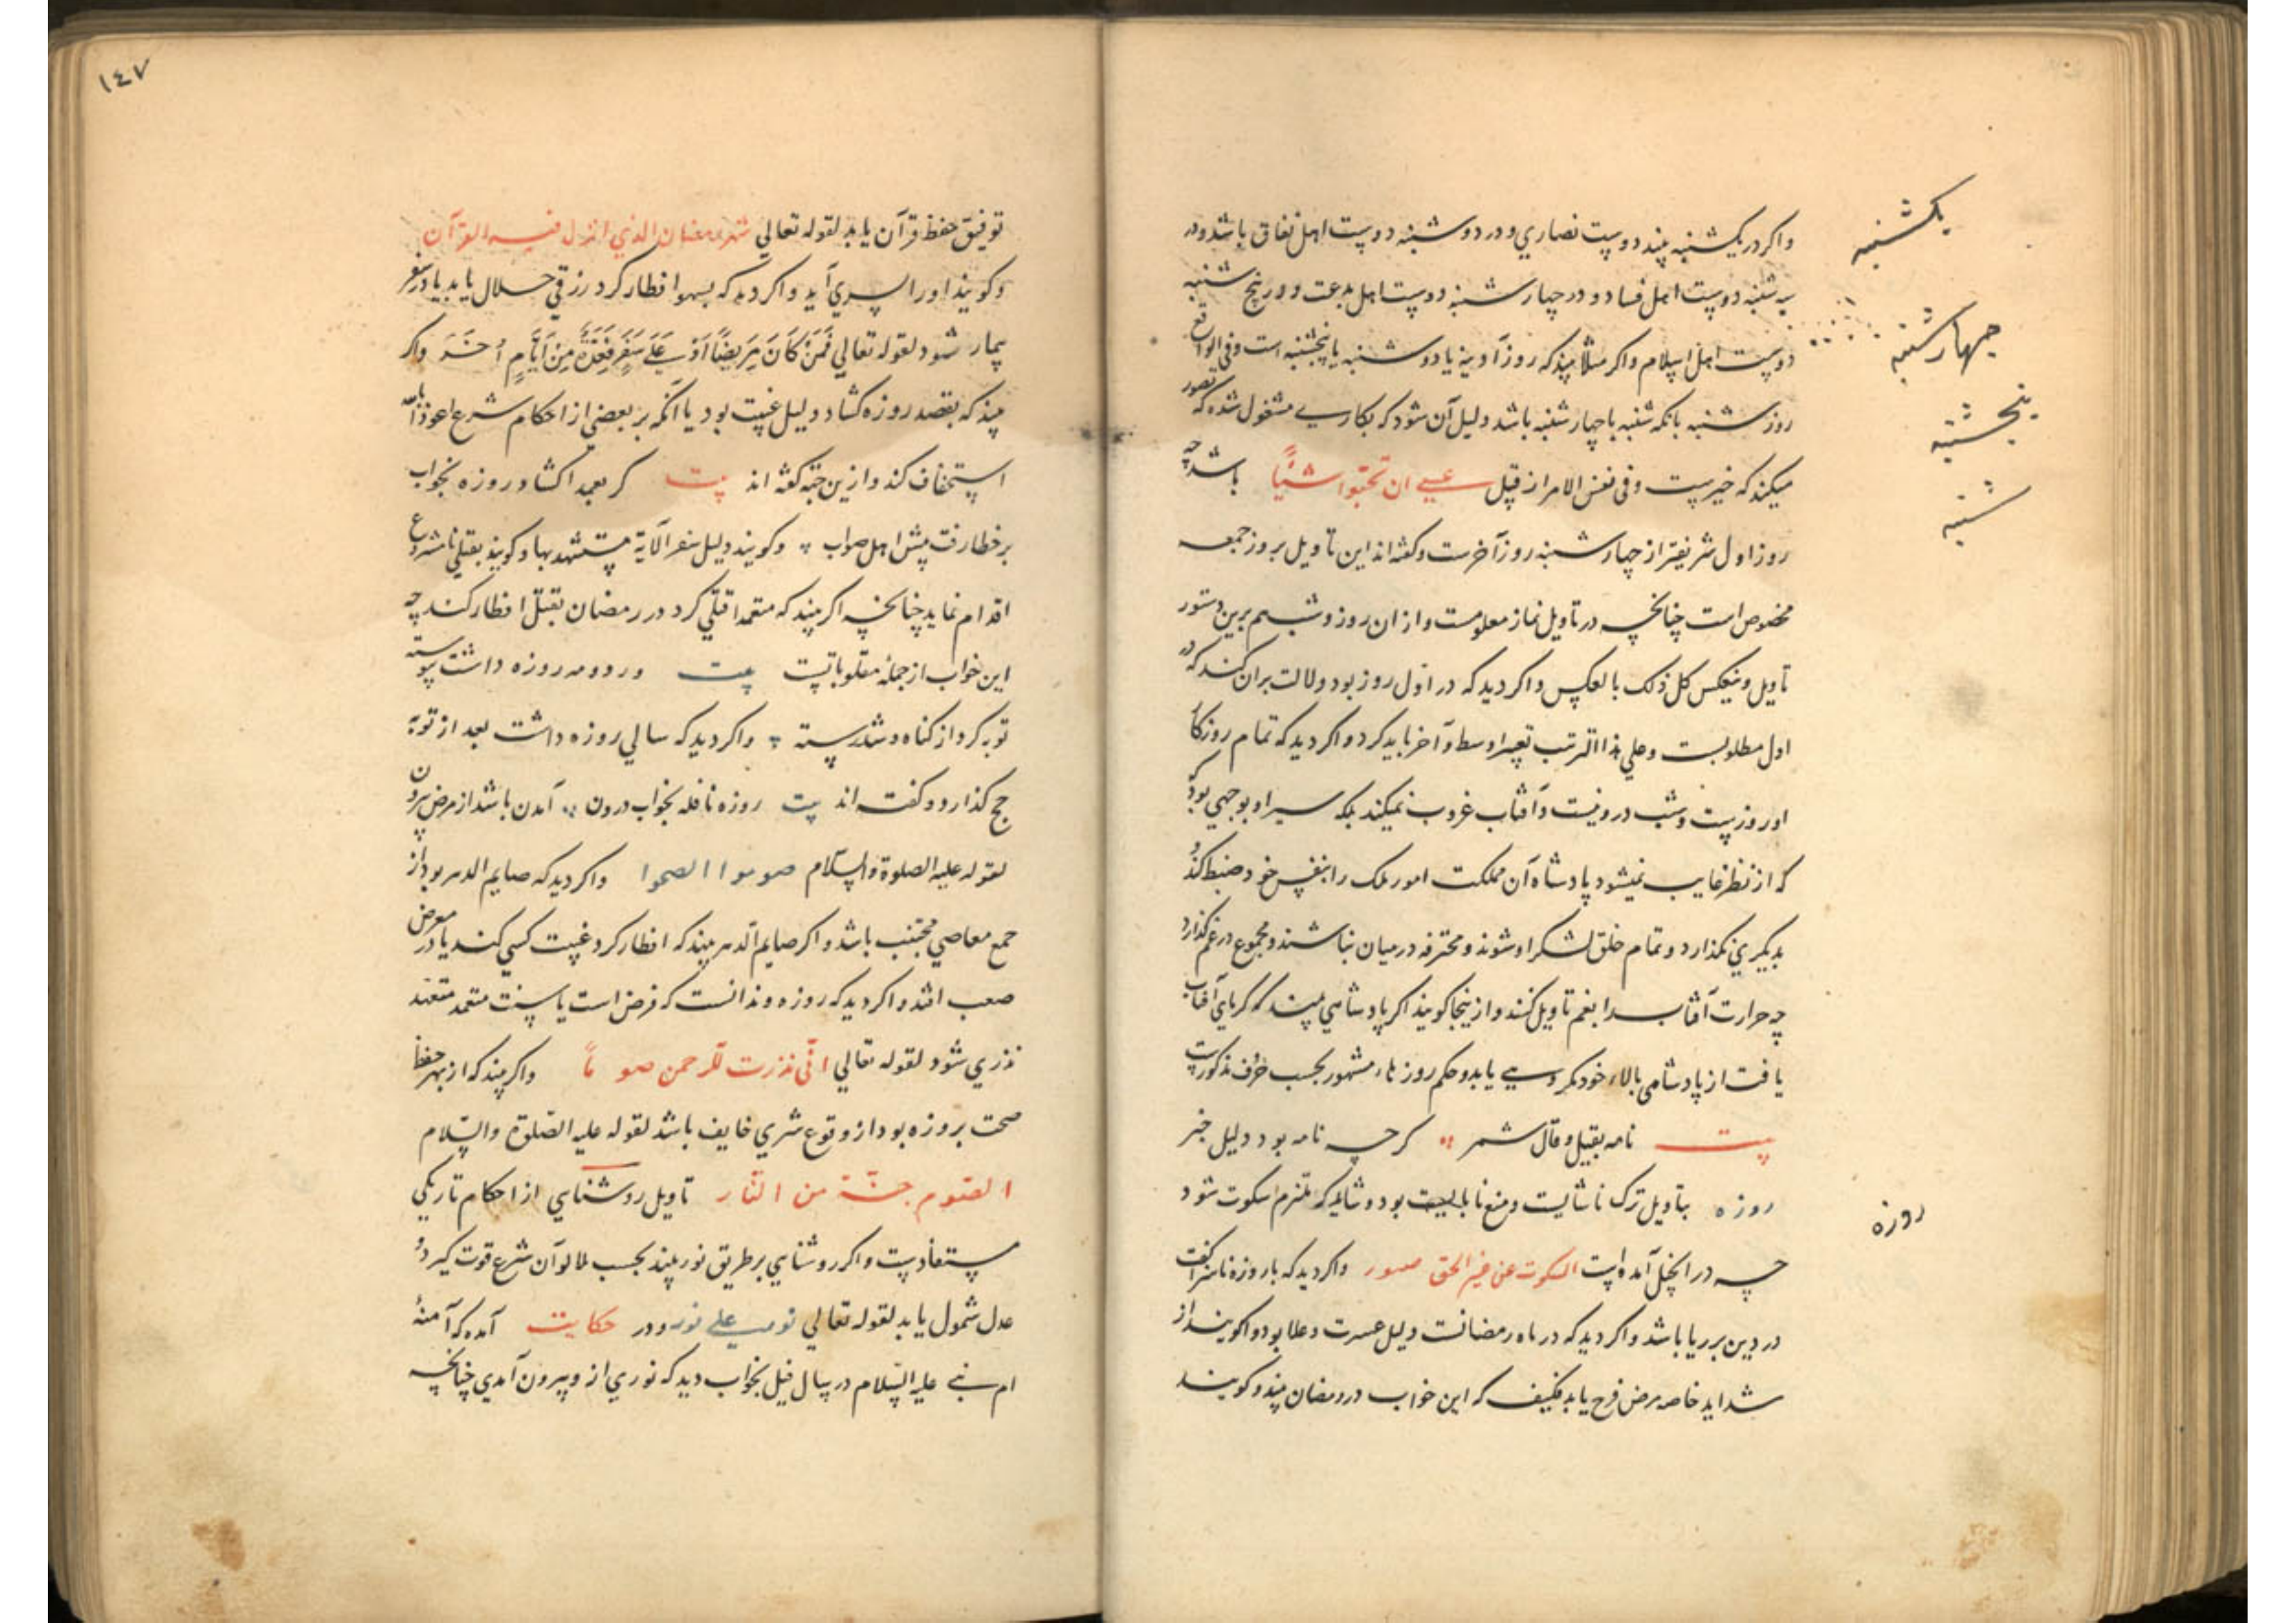 واکر در یکشنبه بیند دوست نصاري و در دوشنبه دوست اهل نفاق باشد و در
سه شنبه دوست اهل فساد و در چهار شنبه دوست اهل بدعت و در پنج شنبه
دوست اهل اسلام واکر مثلا بیند که روز آدینه یا دوشنبه یا پنجشنبه است وفی الواقع
روز شنبه یا نکه شنبه یا چهار شنبه باشد دلیل آن شود که بکاری مشغول شده که تصور
میکند که خیرست وفی نفس الامر از قبیل عسی ان تحبوا شیًٔا باشد چه
روز اول شریفتر از چهار شنبه روز آخرست و کفته اند این تاویل بروز جمعه
مخصوص است چنانکه در تاویل نماز معلومست و از ان روز و شب هم برین دستور
تاویل وینعکس کل ذلک بالعکس واکر دید که در اول روز بود دلالت بران کند که در
اول مطلوبست وعلي هذا الترتیب تعبیر اوسط و آخر باید کرد و اکر دید که تمام روزکار
او روزست وشب درو نیست و آفتاب غروب نمیکند بلکه سیر او بوجهي بود
که از نظر غایب نمیشود پادشاه آن مملکت امور ملک را بنفس خود ضبط کند و
بدیکري نکذارد و تمام خلق لشکر او شوند و محترفه در میان نباشند و مجموع در غم کذارد
چه حرارت آفتاب را بغم تاویل کنند و از ینجا کویند اکر پادشاهي بیند که کرماي آفتاب
یافت از پادشاهی بالاء خود مکروهی یابد و حکم روزهاء مشهور بحسب حرف مذکورست
بیت نامه بقیل و قال شمر کرچه نامه بود دلیل خبر
روزه بتاویل ترک ناشایست ومنع نابایست بود و شاید که ملتزم سکوت شود
چه در انجیل آمده است السکوت عن غیر الحق صوم واکر دید که با روزه ناسزا کفت
در دین بر ریا باشد واکر دید که در ماه رمضانست دلیل عسرت و غلا بود و اکویند از
شداید خاصه مرض فرح یابد فکیف که این خواب در رمضان بیند و کویند
یکشنبه
چهار شنبه
پنجشنبه
شنبه
روزه
١٤٧
توفیق حفظ قرآن یابد لقوله تعالي شهر رمضان الذي انزل فیه القرآن
و کویند اورا پسري آید واکر دید که بسهو افطار کرد رزقي حلال یابد یا در سفر
بیمار شود لقوله تعالي فَمَنْ كَانَ مَرِيضًا اَوْ عَلَى سَفَرٍ فَعِدَّةٌ مِنْ اَيَّامٍ اُخَرَ واکر
بیند که بقصد روزه کشاد دلیل غیبت بود یا آنکه بر بعضي از احکام شرع اعوذ بالله
استخفاف کند و ازین جهة کفته اند بیت کر بعمد اکشاد روزه بخواب
بر خطا رفت پیش اهل صواب و کویند دلیل سفر الآیة مستشهد بها و کویند بقتلي نامشروع
اقدام نماید چنانکه اکر بیند که متعمدا قتلي کرد در رمضان بقتل افطار کند چه
این خواب از جملهٔ مقلوباتست بیت ور دو مه روزه داشت پیوسته
توبه کرد از کناه و شد رسته واکر دید که سالي روزه داشت بعد از توبه
حج کذارد و کفته اند بیت روزه نافله بخواب درون آمدن باشد از مرض بیرون
لقوله علیه الصلوة والسلام صوموا الصحوا واکر دید که صایم الدهر بود از
جمع معاصي مجتنب باشد و اکر صایم الدهر بیند که افطار کرد غیبت کسي کند یا در معرض
صعب افتد و اکر دید که روزه و ندانست که فرض است یا سنت متعمد متعهد
نذري شود لقوله تعالي انّي نذرت للرحمن صوماً واکر بیند که از بهر حفظ
صحت بروزه بود از وقوع شري خایف باشد لقوله علیه الصلوة والسلام
الصوم جنّة من النار تاویل روشنایي از احکام تاریکي
مستفادست واکر روشنایي بر طریق نور بیند بحسب لمالو آن شرع قوت کیرد و
عدل شمول یابد لقوله تعالي نور علي نور و در حکایت آمده که آمنهٔ
ام نبی علیه السلام در سال فیل بخواب دید که نوري از و بیرون آمدي چنانچه